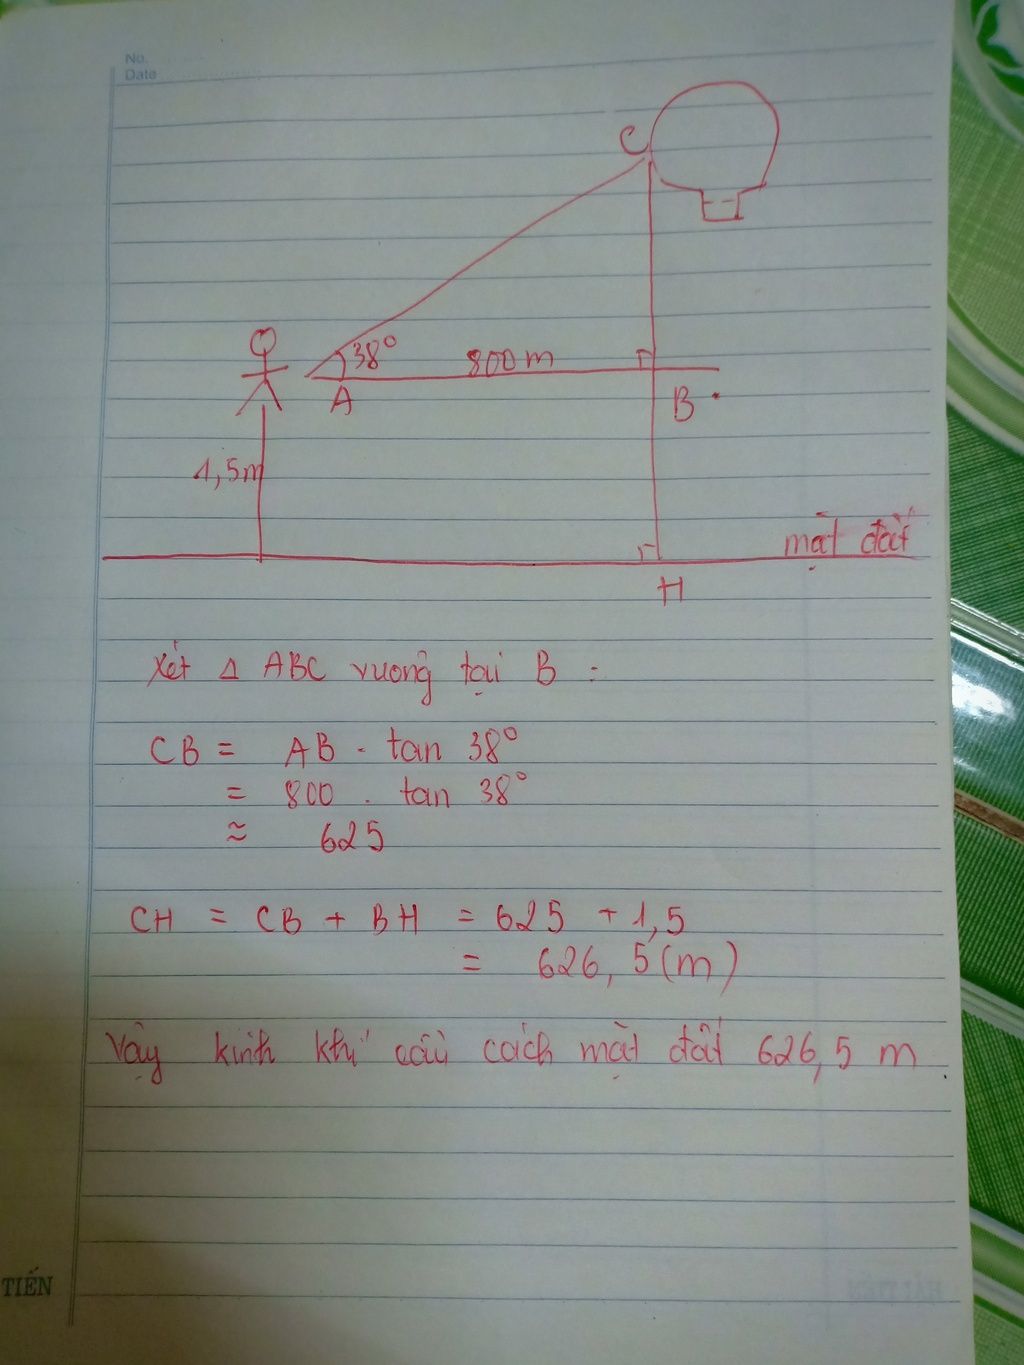 No.
Date
C
38°
800m
A
B
1,5m
mặt đất
H
Xét Δ ABC vuông tại B :
CB = AB . tan 38°
= 800 . tan 38°
≈ 625
CH = CB + BH = 625 + 1,5
= 626,5 (m)
Vậy kinh khí cầu cách mặt đất 626,5 m
TIẾN